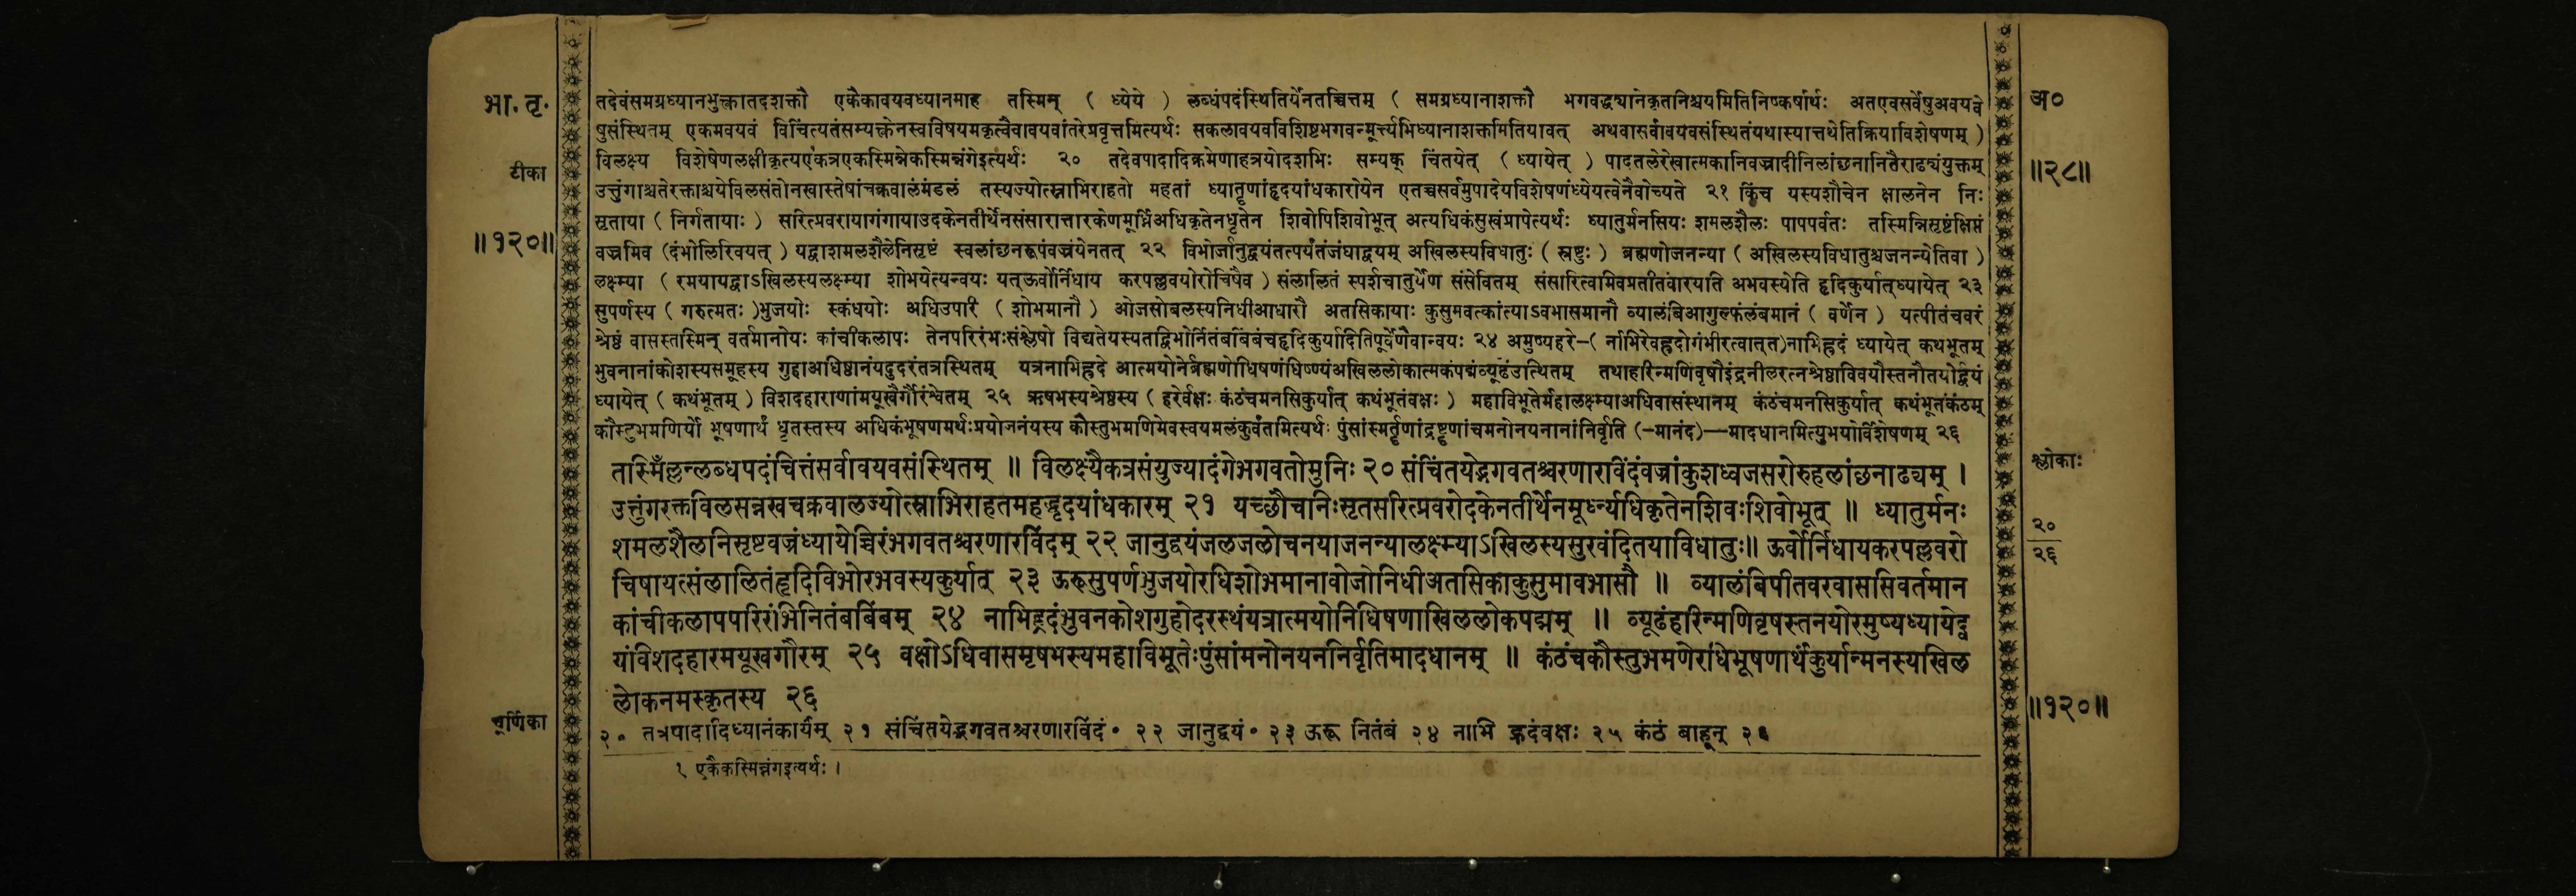 भा. तृ.
टीका
॥१२०॥
तदेवंसमग्रध्यानभुक्त्वातदशक्तौ एकैकावयवध्यानमाह तस्मिन् ( ध्येये ) लब्धंपदंस्थितिर्येनतच्चित्तम् ( समग्रध्यानाशक्तौ भगवद्ध्यानेकृतनिश्चयमितिनिष्कर्षार्थः अतएवसर्वेषुअवयवे
षुसंस्थितम् एकमवयवं विचिंत्यतंसम्यक्त्वेनस्वविषयमकृत्वैवावयवांतरेप्रवृत्तमित्यर्थः सकलावयवविशिष्टभगवन्मूर्त्त्यभिध्यानाशक्तमितियावत् अथवासर्वावयवसंस्थितंयथास्यात्तथेतिक्रियाविशेषणम् )
विलक्ष्य विशेषेणलक्षीकृत्यएकत्रएकस्मिन्नेकस्मिन्नंगेइत्यर्थः २० तदेवपादादिक्रमेणाहत्रयोदशभिः सम्यक् चिंतयेत् ( ध्यायेत् ) पादतलेरेखात्मकानिवज्रादीनिलांछनानितैराढ्यंयुक्तम्
उत्तुंगाश्चतेरक्ताश्चयेविलसंतोनखास्तेषांचक्रवालंमंडलं तस्यज्योत्स्नाभिराहतो महतां ध्यातॄणांहृदयांधकारोयेन एतच्चसर्वमुपादेयविशेषणंध्येयत्वेनैवोच्यते २१ किंच यस्यशौचेन क्षालनेन निः
सृताया ( निर्गतायाः ) सरित्प्रवरायागंगायाउदकेनतीर्थेनसंसारात्तारकेणमूर्ध्निअधिकृतेनधृतेन शिवोपिशिवोभूत् अत्यधिकंसुखंप्रापेत्यर्थः ध्यातुर्मनसियः शमलशैलः पापपर्वतः तस्मिन्निसृष्टंक्षिप्तं
वज्रमिव (दंभोलिरिवयत् ) यद्वाशमलशैलेनिसृष्टं स्वलांछनरूपंवज्रंयेनतत् २२ विभोर्जानुद्वयंतत्पर्यंतंजंघाद्वयम् अखिलस्यविधातुः ( स्रष्टुः ) ब्रह्मणोजनन्या ( अखिलस्यविधातुश्चजनन्येतिवा )
लक्ष्म्या ( रमयायद्वाऽखिलस्यलक्ष्म्या शोभयेत्यन्वयः यत्ऊर्वोर्निधाय करपल्लवयोरोचिषैव ) संलालितं स्पर्शचातुर्येण संसेवितम् संसारित्वामिवप्रतीतंवारयति अभवस्येति हृदिकुर्यात्ध्यायेत् २३
सुपर्णस्य ( गरुत्मतः )भुजयोः स्कंधयोः अधिउपरि ( शोभमानौ ) ओजसोबलस्यनिधीआधारौ अतसिकायाः कुसुमवत्कांत्याऽवभासमानौ व्यालंबिआगुल्फंलंबमानं ( वर्णेन ) यत्पीतंचवरं
श्रेष्ठं वासस्तस्मिन् वर्तमानोयः कांचीकलापः तेनपरिरंभःसंश्लेषो विद्यतेयस्यतद्विभोर्नितंबबिंबंचहृदिकुर्यादितिपूर्वेणैवान्वयः २४ अमुष्यहरे–( र्नाभिरेवह्रदोगंभीरत्वात्त)नाभिह्रदं ध्यायेत् कथंभूतम्
भुवनानांकोशस्यसमूहस्य गुहाअधिष्ठानंयदुदरंतत्रस्थितम् यत्रनाभिह्रदे आत्मयोनेर्ब्रह्मणोधिषणंधिष्ण्यंअखिललोकात्मकंपद्मंव्यूढंउत्थितम् तथाहरिन्मणिवृषौइंद्रनीलरत्नश्रेष्ठाविवयौस्तनौतयोर्द्वयं
ध्यायेत् ( कथंभूतम् ) विशदहाराणांमयूखैर्गौरंश्वेतम् २५ ऋषभस्यश्रेष्ठस्य ( हरेर्वक्षः कंठंचमनसिकुर्यात् कथंभूतंवक्षः ) महाविभूतेर्महालक्ष्म्याअधिवासंस्थानम् कंठंचमनसिकुर्यात् कथंभूतंकंठम्
कौस्तुभमणिर्यो भूषणार्थं धृतस्तस्य अधिकंभूषणमर्थःप्रयोजनंयस्य कौस्तुभमणिमेवस्वयमलंकुर्वंतमित्यर्थः पुंसांस्मर्तॄणांद्रष्टॄणांचमनोनयनानांनिर्वृति (–मानंद)—मादधानमित्युभयोर्विशेषणम् २६
तस्मिँल्लब्धपदंचित्तंसर्वावयवसंस्थितम् ॥ विलक्ष्यैकत्रसंयुज्यादंगेभगवतोमुनिः २० संचिंतयेद्भगवतश्चरणारविंदंवज्रांकुशध्वजसरोरुहलांछनाढ्यम् ।
उत्तुंगरक्तविलसन्नखचक्रवालज्योत्स्नाभिराहतमहद्धृदयांधकारम् २१ यच्छौचनिःसृतसरित्प्रवरोदकेनतीर्थेनमूर्ध्न्यधिकृतेनशिवःशिवोभूत् ॥ ध्यातुर्मनः
शमलशैलनिसृष्टवज्रंध्यायेच्चिरंभगवतश्चरणारविंदम् २२ जानुद्वयंजलजलोचनयाजनन्यालक्ष्म्याऽखिलस्यसुरवंदितयाविधातुः॥ ऊर्वोर्निधायकरपल्लवरो
चिषायत्संलालितंहृदिविभोरभवस्यकुर्यात् २३ ऊरूसुपर्णभुजयोरधिशोभमानावोजोनिधीअतसिकाकुसुमावभासौ ॥ व्यालंबिपीतवरवाससिवर्तमान
कांचीकलापपरिरंभिनितंबबिंबम् २४ नाभिह्रदंभुवनकोशगुहोदरस्थंयत्रात्मयोनिधिषणाखिललोकपद्मम् ॥ व्यूढंहरिन्मणिवृषस्तनयोरमुष्यध्यायेद्द्व
यांविशदहारमयूखगौरम् २५ वक्षोऽधिवासमृषभस्यमहाविभूतेःपुंसांमनोनयननिर्वृतिमादधानम् ॥ कंठंचकौस्तुभमणेरधिभूषणार्थंकुर्यान्मनस्यखिल
लोकनमस्कृतस्य २६
चूर्णिका
२० तत्रपादादिध्यानंकार्यम् २१ संचिंतयेद्भगवतश्चरणारविंदं॰ २२ जानुद्वयं॰ २३ ऊरू नितंबं २४ नाभि ह्रदंवक्षः २५ कंठं बाहून् २६
१ एकैकस्मिन्नंगइत्यर्थः ।
अ०
॥२८॥
श्लोकाः
२०
२६
॥१२०॥